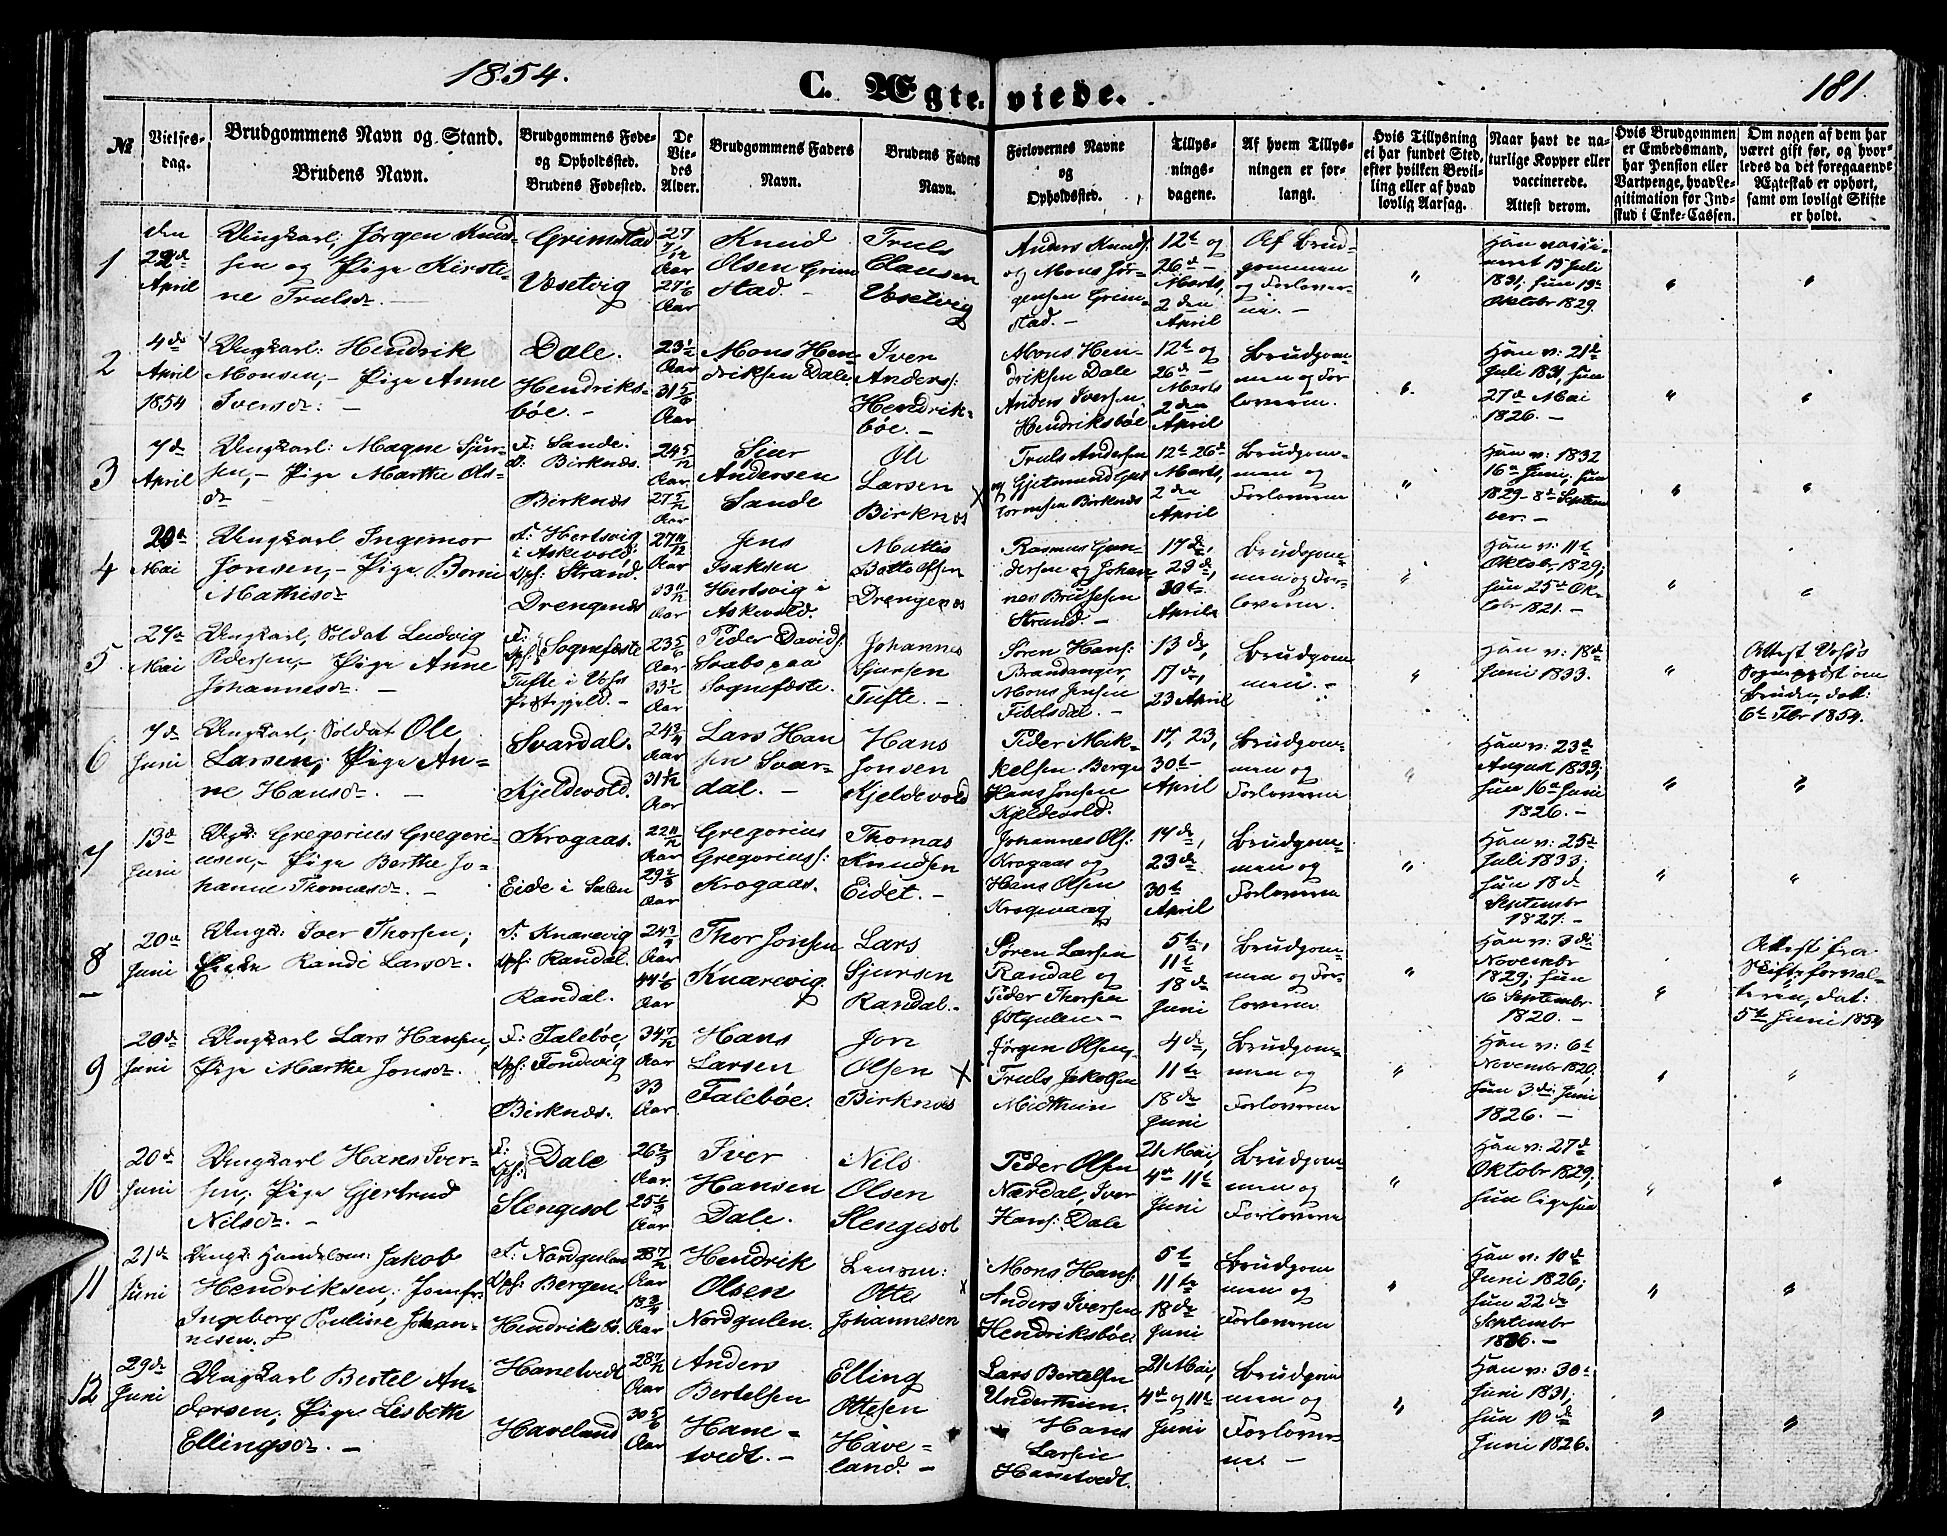 1854.
C. Ægteviede.
181.
№
Vielses-
dag.
Brudgommens Navn og Stand.
Brudens Navn.
Brudgommens Føde-
og Opholdssted.
Brudens Fødested.
De
Vie-
des
Alder.
Brudgommens Faders
Navn.
Brudens Faders
Navn.
Forlovernes Navne
og
Opholdssted.
Tillys-
nings-
dagene.
Af hvem Tillys-
ningen er for-
langt.
Hvis Tillysning
ei har fundet Sted,
efter hvilken Bevil-
ling eller af hvad
lovlig Aarsag.
Naar havt de na-
turlige Kopper eller
vaccinerede.
Attest derom.
Hvis Brudgommen
er Embedsmand,
har Pension eller
Vartpenge, hvad Le-
gitimation for Ind-
skud i Enke-Cassen.
Om nogen af dem har
været gift før, og hvor-
ledes da det foregaaende
Ægteskab er ophørt,
samt om lovligt Skifte
er holdt.
1
den
22de
April
Ungkarl, Jørgen Knud-
sen og Pige Kirsti-
ne Trulsdr. —
Grimstad
Væsetvig
27 7/12
Aar
27 1/6
Aar
Knud
Olsen Grim
stad. —
Truls
Clausen
Væsetvig
Anders Knuds:
og Mons Jør-
gensen Grim-
stad. —
12te og
26de —
Marts,
2den
April
Af Brud-
gommen
og Forlover-
ne. —
"
Han vacci-
neret 15 Juli
1831; hun 19de
Oktobr 1829.
"
"
2
4de
April
1854
Ungkarl: Hendrik
Monsen, — Pige Anne
Iversdr: —
Dale.
Hendriks-
bøe. —
23 1/2
Aar
31 5/6
Aar
Mons Hen
driksen Dale
Iver
Anders:
Hendrik-
bøe. —
Mons Hen-
driksen Dale
Anders Iversen
Hendriksbøe
12te og
26de —
Marts
2den
April
Brudgom-
men og For
loverne.
"
Han v: 21de
Juli 1831, hun
27de Mai
1826. —
"
"
3
7de
April
Ungkarl: Magne Sjur-
sen, — Pige Marthe Ols-
dr
F: Sande.
O: Birknæs.
Birknæs
24 5/12
Aar
27 5/12
Aar
Sjur
Andersen
Sande
Ole
Larsen
Birknæs
Truls Andersen
og Gjetmund Gut
tormsen Birknæs
12te 26de
Marts,
2den
April
Brudgom-
men og
Forloverne
"
Han v: 1832
16de Juni, hun
1829 8de Septem
ber. —
"
"
4
20de
Mai
Ungkarl Ingemor
Jensen, — Pige Borni
Mathisdr
F: Hertsvig
i Askevold;
Oph: Strand.
Drengenæs
27 11/12
Aar
33 11/12
Aar
Jens
Isaksen
Hertsvig i
Askevold.
Mattis
Batto Olsen
Drengenæs
Rasmus Gun-
dersen og Johan
nes Brusesen
Strand —
17de,
23de,
30te
Aprile
Brudgom-
men og For-
loverne.
"
Han v: 11te
Oktobr 1829;
hun 25de Ok-
tobr 1821. —
"
"
5
27de
Mai
Ungkarl, Soldat Ludvig
Pedersen, — Pige Anne
Johannesdr. —
F:
Oph: Sognefæste
Tufte i Vosss
Præstegjeld. —
23 5/6
Aar
33 1/2
Aar
Peder Davids:
Svabs paa
Sognefæste.
Johannes
Sjursen
Tufte. —
Søren Hans:
Brandanger,
Mons Jensen
Fibelsdal. —
13de,
17de,
23 April
Brudgom-
men. —
"
Han v: 18de
Juni 1833.
"
Attest Vossø
Sognepræst om
Bruden, dat:
6te Fbr 1854.
6
7de
Juni
Ungkarl, Soldat Ole
Larsen, Pige An-
ne Hansdr. —
Svardal.
Kjeldevold.
24 3/4
Aar
31 1/12
Aar
Lars Han
sen Svar-
dal. —
Hans
Jonsen
Kjeldevold
Peder Mik-
kelsen Berge
Hans Jonsen
Kjeldevold.
17, 23,
30te
April
Brudgom-
men og
Forloverne
"
Han v: 23de
August 1833;
hun 16de Juni
1826. —
"
"
7
13de
Juni
Ungk: Gregorius Gregori-
usen, — Pige Berthe Jo-
hanne Thomasdr. —
Krogaas.
Eide i Sulen
22 11/12
Aar
29 2/3
Aar
Gregorius
Gregorius:
Krogaas.
Thomas
Knudsen
Eidet. —
Johannes Ols:
Krogaas og
Hans Olsen
Krogevaag
17de,
23de
30te
April
Brudgom-
men og
Forloverne
"
Han v: 25de
Juli 1833;
hun 18de
Septembr
1827. —
"
"
8
20de
Juni
Ungk: Iver Thorsen,
Pige Randi Larsdr.
F: Knarevig
Oph: Randal.
Randal.
24 3/4
Aar
44 1/6
Aar
Thor Jonsen
Knarevig.
Lars
Sjursen
Randal. —
Søren Larsen
Randal og
Peder Thorsen
Østgulen. —
5te,
11te
18de
Juni
Brudgom-
men og For-
loverne.
"
Han v: 3de
Novembr
1829; hun
16 Septembr
1820. —
"
Attest fra
Skifteforval-
teren, dat:
5te Juni 1854
9
20de
Juni
Ungkarl Lars Hansen,
Pige Marthe Jonsdr.
F: Talebøe,
Oph: Tondevig
Birknæs.
34 7/12
Aar
33
Aar
Hans
Larsen
Talebøe.
Jon
Olsen
Birknæs
Jørgen Olsen,
Truls Jakobsen
Midttun
4de,
11te
18de
Juni
Brudgom-
men og
Forloverne
"
Han v: 6te
Novembr 1820,
hun 3die Juni
1826. —
"
"
10
20de
Juni
Ungkarl Hans Iver-
sen; Pige Gjertrud
Nilsdr. —
F:
Oph: Dale
Stengesol
26 2/3
Aar.
25 2/3
Aar
Iver
Hansen
Dale.
Nils
Olsen
Stengesol
Peder Olsen
Nærdal, Iver
Hans: Dale
21 Mai,
4de 11te
Juni
Brudgom-
men og
Forloverne
"
Han v: 27de
Oktobr 1829;
hun ligesaa
"
"
11
21de
Juni
Ungk: Handelsm: Jakob
Hendriksen, Jomfr:
Ingeborg Pouline Johan-
nesen.
F: Nordgulen
Oph: Bergen.
Hendriksb.
28 7/12
Aar
18 3/4
Aar
Hendrik
Olsen
Nordgulen.
Lensm:
Otte
Johannesen
Mons Hans:
Anders Iversen
Hendriksbøe.
5te
11te
18de
Juni
Brudgom
men og
Forloverne
"
Han v: 10de
Juni 1826;
hun 22de
Septembr
1836. —
"
"
12
29de
Juni
Ungkarl Bertel An-
dersen; Pige Lisbeth
Ellingsdr. —
Hanetvedt
Haveland
28 7/12
Aar
30 5/6
Aar
Anders
Bertelsen
Hane-
tvedt. —
Elling
Ottesen
Have-
land. —
Lars Bertelsen
Undertun.
Hans
Larsen
Hanetvedt.
21 Mai,
4de og 11te
Juni
Brudgom
men og
Forlover-
ne. —
"
Han v: 30te
Juni 1831;
hun 10de
Juni 1826.
"
"